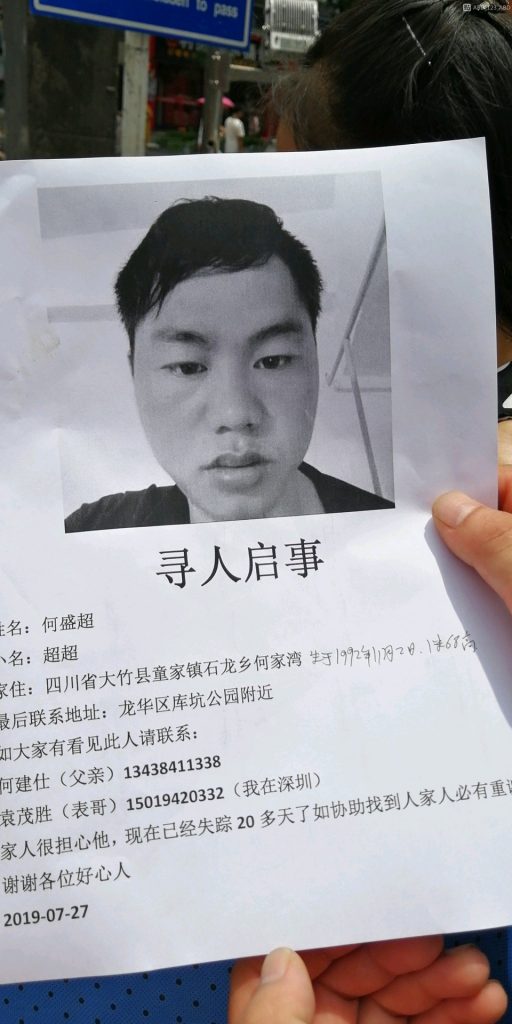 to pass
寻人启事
姓名：何盛超
小名：超超
家住：四川省大竹县童家镇石龙乡何家湾 生于1992年11月2日.1米68高
最后联系地址：龙华区库坑公园附近
如大家有看见此人请联系：
何建仕（父亲）13438411338
袁茂胜（表哥）15019420332（我在深圳）
家人很担心他，现在已经失踪20多天了如协助找到人家人必有重
谢谢各位好心人
2019-07-27